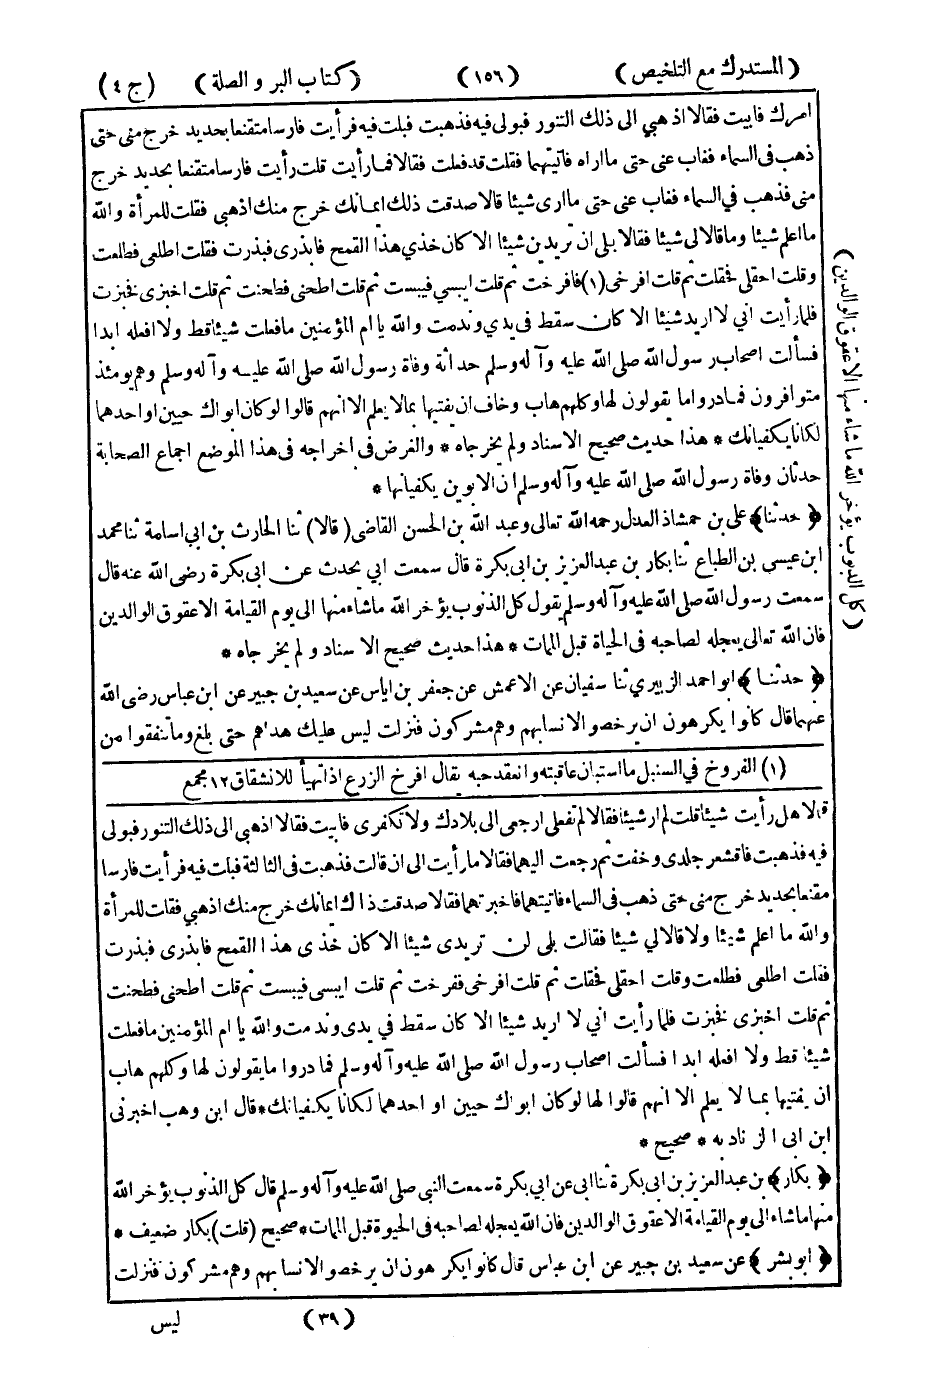 (المستدرك مع التلخيص) (١٥٦) (كتاب البر والصلة) (ج ٤)
امرك فابيت فقالا اذهبي الى ذلك التنور فبولى فيه فذهبت فبلت فيه فرأيت فارسا متقنعا بحديد خرج منى حتى
ذهب فى السماء فغاب عنى حتى ما اراه فاتيتهما فقلت قد فعلت فقالا فما رأيت قلت رأيت فارسا متقنعا بحديد خرج
منى فذهب في السماء فغاب عنى حتى ما ارى شيئا قالا صدقت ذلك ايمانك خرج منك اذهبي فقلت للمرأة والله
ما اعلم شيئا وما قالا لى شيئا فقالا بلى ان تريدين شيئا الا كان خذي هذا القمح فابذرى فبذرت فقلت اطلعى فطلعت
وقلت احقلى فحقلت ثم قلت افرخى (١) فافرخت ثم قلت ايبسي فيبست ثم قلت اطحنى فطحنت ثم قلت اخبزى فخبزت
فلما رأيت اني لا اريد شيئا الا كان سقط فى يدي وندمت والله يا ام المؤمنين ما فعلت شيئا قط ولا افعله ابدا
فسألت اصحاب رسول الله صلى الله عليه وآله وسلم حداثة وفاة رسول الله صلى الله عليه وآله وسلم وهم يومئذ
متوافرون فما دروا ما يقولون لها وكلهم هاب وخاف ان يفتيها بما لا يعلم الا انهم قالوا لو كان ابواك حيين او احدهما
لكانا يكفيانك * هذا حديث صحيح الاسناد ولم يخرجاه * والغرض فى اخراجه فى هذا الموضع اجماع الصحابة
حدثان وفاة رسول الله صلى الله عليه وآله وسلم ان الابوين يكفيانها *
﴿حدثنا﴾ على بن حمشاذ العدل رحمه الله تعالى وعبد الله بن الحسن القاضي (قالا) ثنا الحارث بن ابي اسامة ثنا محمد
ابن عيسي بن الطباع ثنا بكار بن عبد العزيز بن ابى بكرة قال سمعت ابي يحدث عن ابى بكرة رضى الله عنه قال
سمعت رسول الله صلى الله عليه وآله وسلم يقول كل الذنوب يؤخر الله ما شاء منها الى يوم القيامة الا عقوق الوالدين
فان الله تعالى يعجله لصاحبه فى الحياة قبل الممات * هذا حديث صحيح الاسناد ولم يخرجاه *
﴿حدثنا﴾ ابو احمد الزبيري ثنا سفيان عن الاعمش عن جعفر بن اياس عن سعيد بن جبير عن ابن عباس رضى الله
عنهما قال كانوا يكرهون ان يرخصوا لانسابهم وهم مشركون فنزلت ليس عليك هداهم حتى بلغ وما تنفقوا من
(١) الفروخ في السنبل ما استبان عاقبته وانعقد حبه يقال افرخ الزرع اذا تهيأ للانشقاق ١٢ مجمع
قالا هل رأيت شيئا قلت لم ار شيئا فقالا لم تفعلى ارجعى الى بلادك ولا تكفرى فابيت فقالا اذهبي الى ذلك التنور فبولى
فيه فذهبت فاقشعر جلدى وخفت ثم رجعت اليهما فقالا ما رأيت الى ان قالت فذهبت فى الثالثة فبات فيه فرأيت فارسا
مقنعا بحديد خرج منى حتى ذهب فى السماء فاتيتهما فاخبرتهما فقالا صدقت ذاك ايمانك خرج منك اذهبي فقلت للمرأة
والله ما اعلم شيئا ولا قالا لي شيئا فقالت بلى لن تريدى شيئا الا كان خذى هذا القمح فابذرى فبذرت
فقلت اطلعى فطلعت وقلت احقلى فحقلت ثم قلت افرخى ففرخت ثم قلت ايبسى فيبست ثم قلت اطحنى فطحنت
ثم قلت اخبزى فخبزت فلما رأيت اني لا اريد شيئا الا كان سقط في يدى وندمت والله يا ام المؤمنين ما فعلت
شيئا قط ولا افعله ابدا فسألت اصحاب رسول الله صلى الله عليه وآله وسلم فما دروا ما يقولون لها وكلهم هاب
ان يفتيها بما لا يعلم الا انهم قالوا لها لو كان ابواك حيين او احدهما لكانا يكفيانك * قال ابن وهب اخبرنى
ابن ابى الزناد به * صحيح *
﴿بكار﴾ بن عبد العزيز بن ابى بكرة ثنا ابى عن ابي بكرة سمعت النبي صلى الله عليه وآله وسلم قال كل الذنوب يؤخر الله
منها ما شاء الى يوم القيامة الا عقوق الوالدين فان الله يعجله لصاحبه فى الحيوة قبل الممات * صحيح (قلت) بكار ضعيف *
﴿ابو بشر﴾ عن سعيد بن جبير عن ابن عباس قال كانوا يكرهون ان يرخصوا لانسابهم وهم مشركون فنزلت
(٣٩) ليس
(كل الذنوب يؤخر الله ما شاء منها الا عقوق الوالدين)